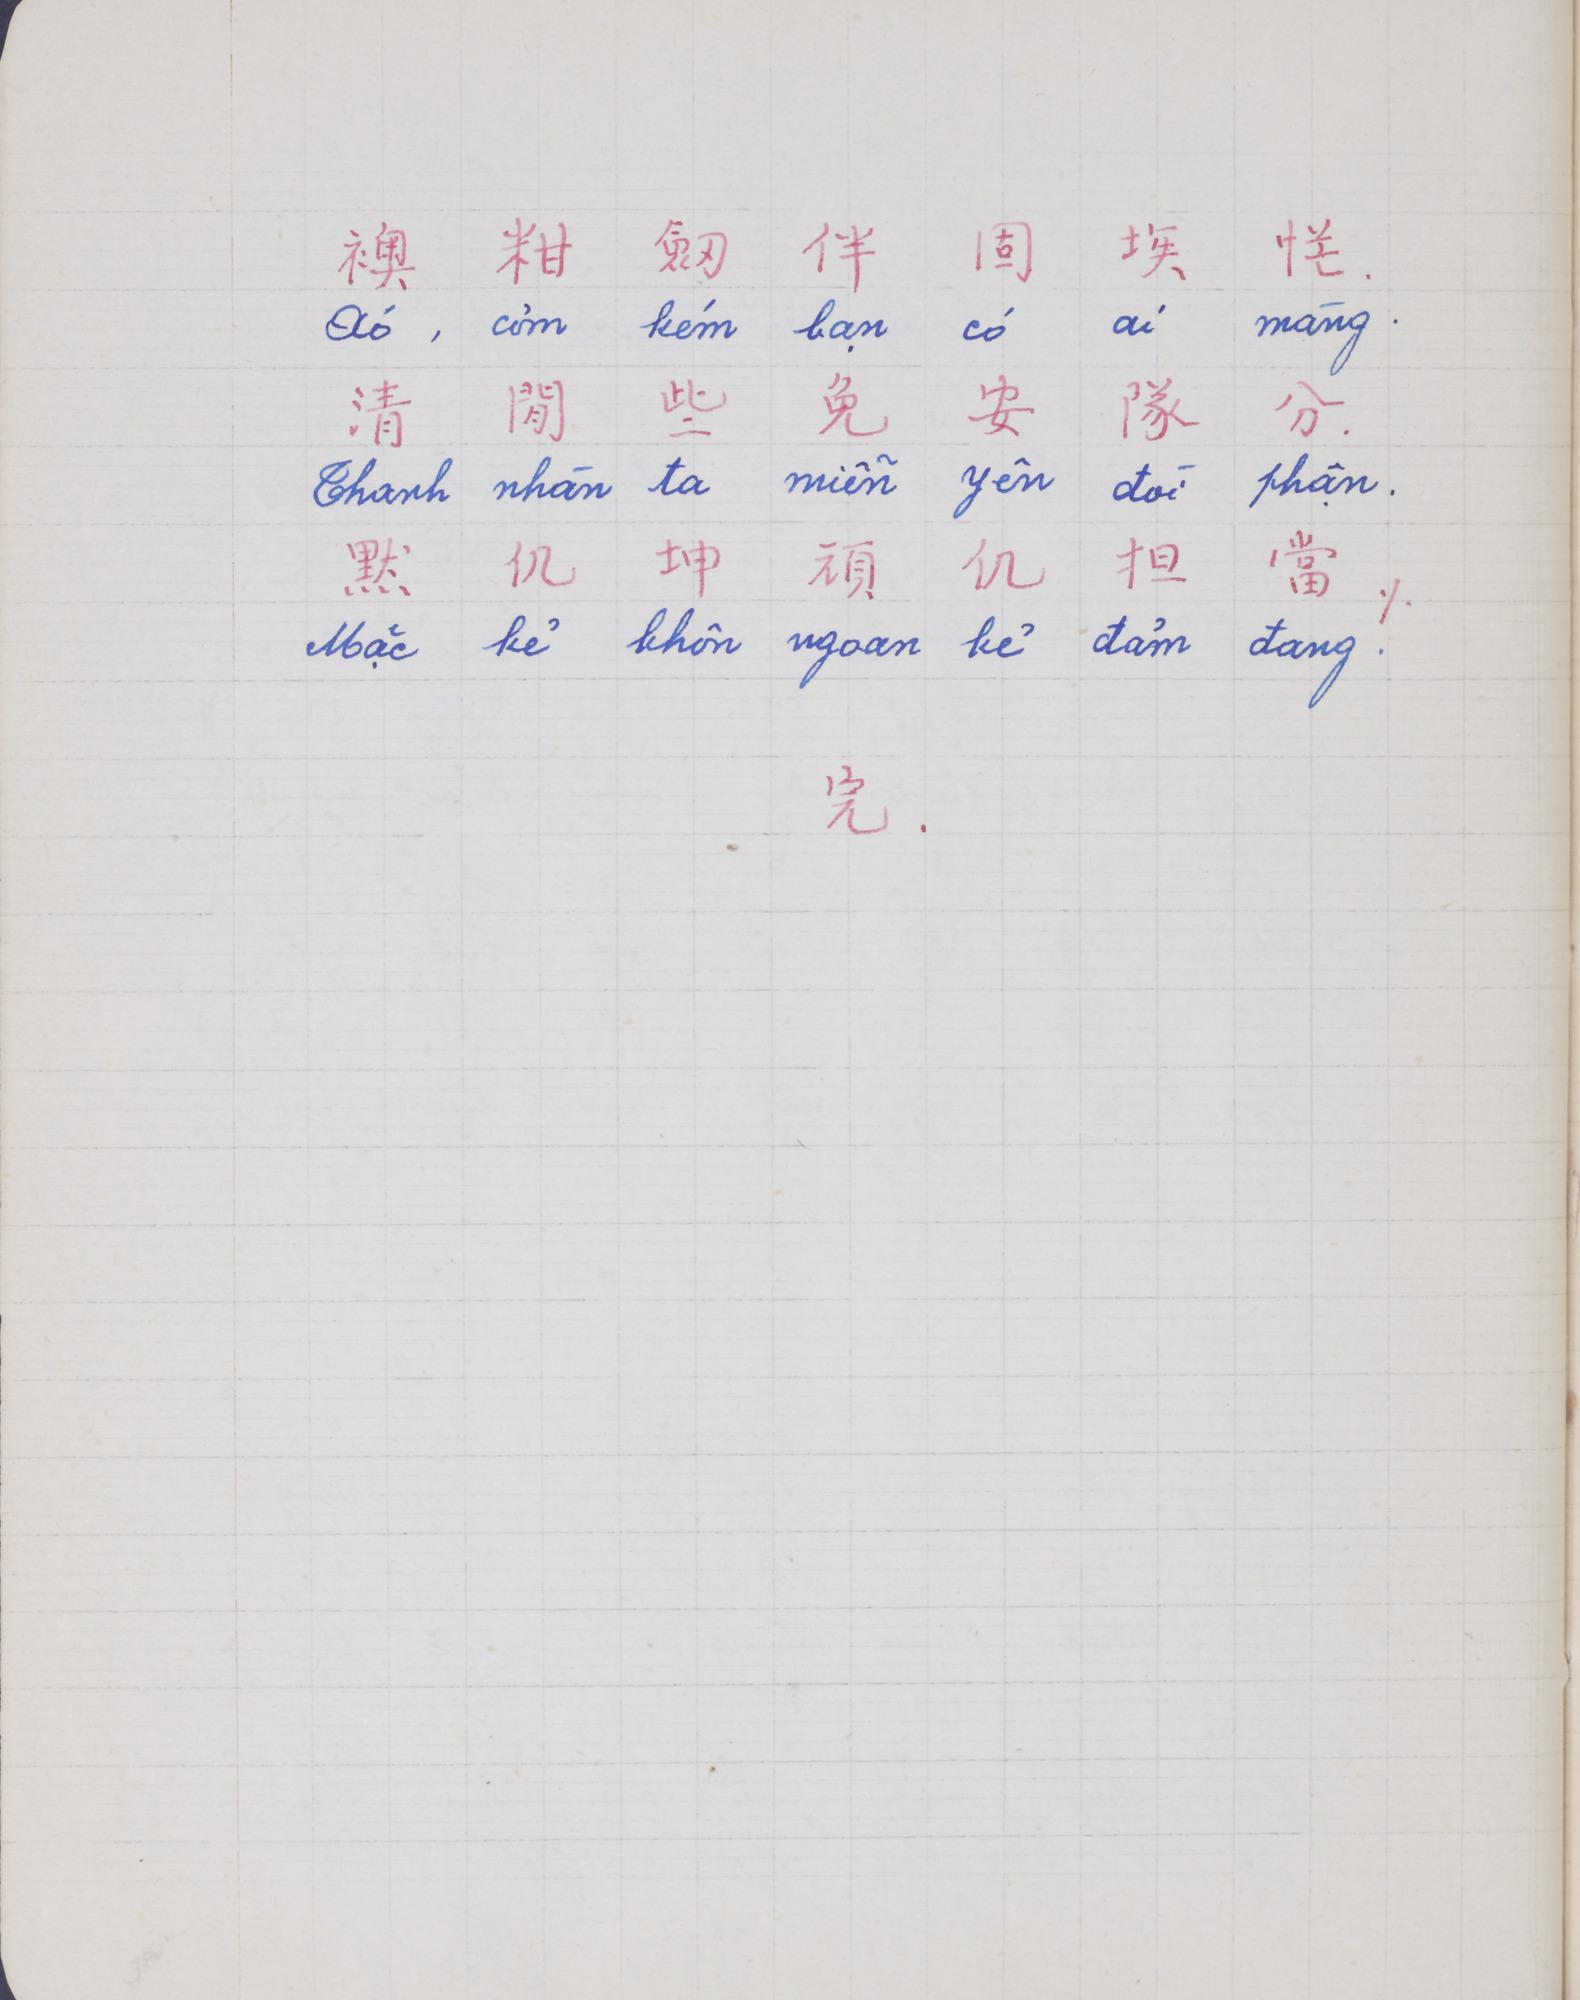 襖 粓 劔 伴 固 埃 恾.
Áó, cơm kém bạn có ai màng.
清 閒 些 免 安 隊 分.
Thanh nhàn ta miễn yên đòi phận.
默 仉 坤 頑 仉 担 當 ⁒
Mặc kẻ khôn ngoan kẻ đảm đang.
完.